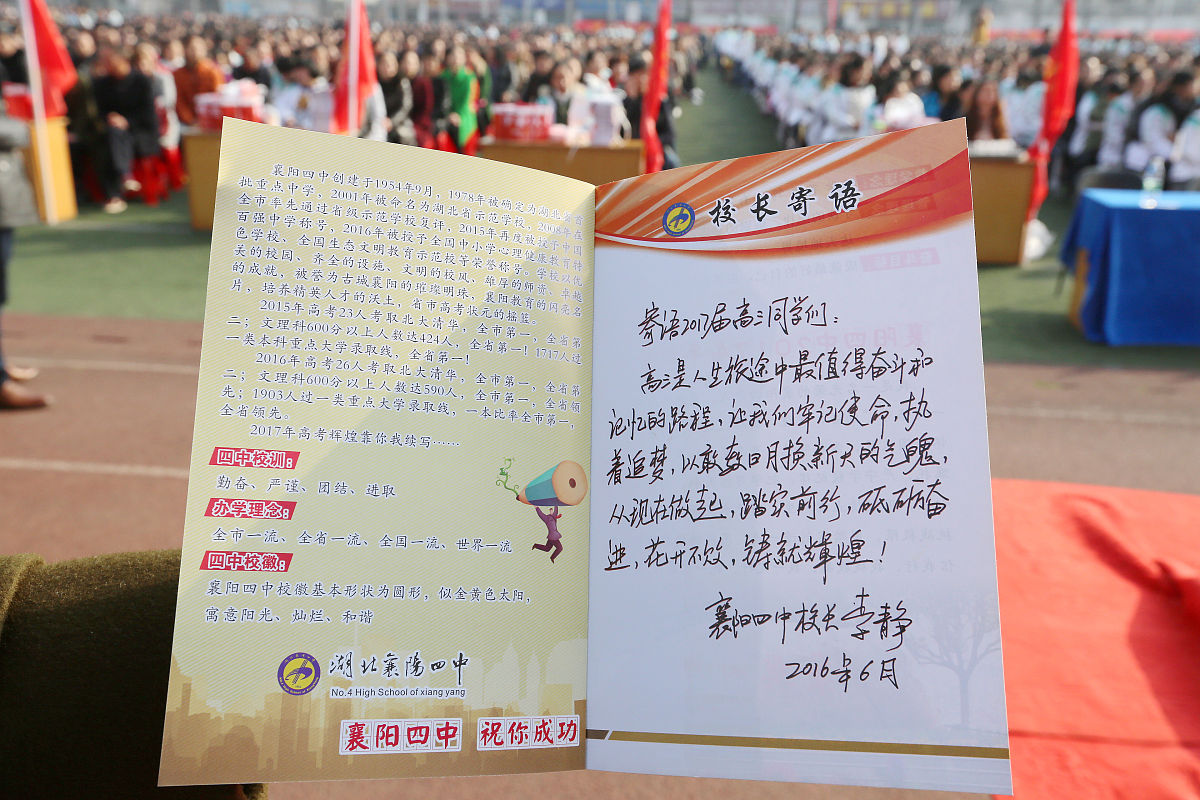 襄阳四中创建于1954年9月，1978年被确定为湖北省首
批重点中学，2001年被命名为湖北省示范学校，2008年在
全市率先通过省级示范学校复评，2015年再度被授予中国
百强中学称号，2016年被授予全国中小学心理健康教育特
色学校、全国生态文明教育示范校等荣誉称号。学校以优
美的校园、齐全的设施、文明的校风、雄厚的师资、卓越
的成就，被誉为古城襄阳的璀璨明珠，襄阳教育的闪亮名
片，培养精英人才的沃土，省市高考状元的摇篮。
2015年高考23人考取北大清华，全市第一，全省第
二；文理科600分以上人数达424人，全省第一！1717人过
一类本科重点大学录取线，全省第一！
2016年高考26人考取北大清华，全市第一，全省第
二；文理科600分以上人数达590人，全市第一，全省领
先；1903人过一类重点大学录取线，一本比率全市第一，
全省领先。
2017年高考辉煌靠你我续写……
四中校训：
勤奋、严谨、团结、进取
办学理念：
全市一流、全省一流、全国一流、世界一流
四中校徽：
襄阳四中校徽基本形状为圆形，似金黄色太阳，
寓意阳光、灿烂、和谐
湖北襄阳四中
No.4 High School of xiang yang
襄阳四中 祝你成功
校长寄语
寄语2017届高三同学们：
高三是人生旅途中最值得奋斗和
记忆的路程，让我们牢记使命，执
着追梦，以敢教日月换新天的气魄，
从现在做起，踏实前行，砥砺奋
进，花开不败，铸就辉煌！
襄阳四中校长李静
2016年6月